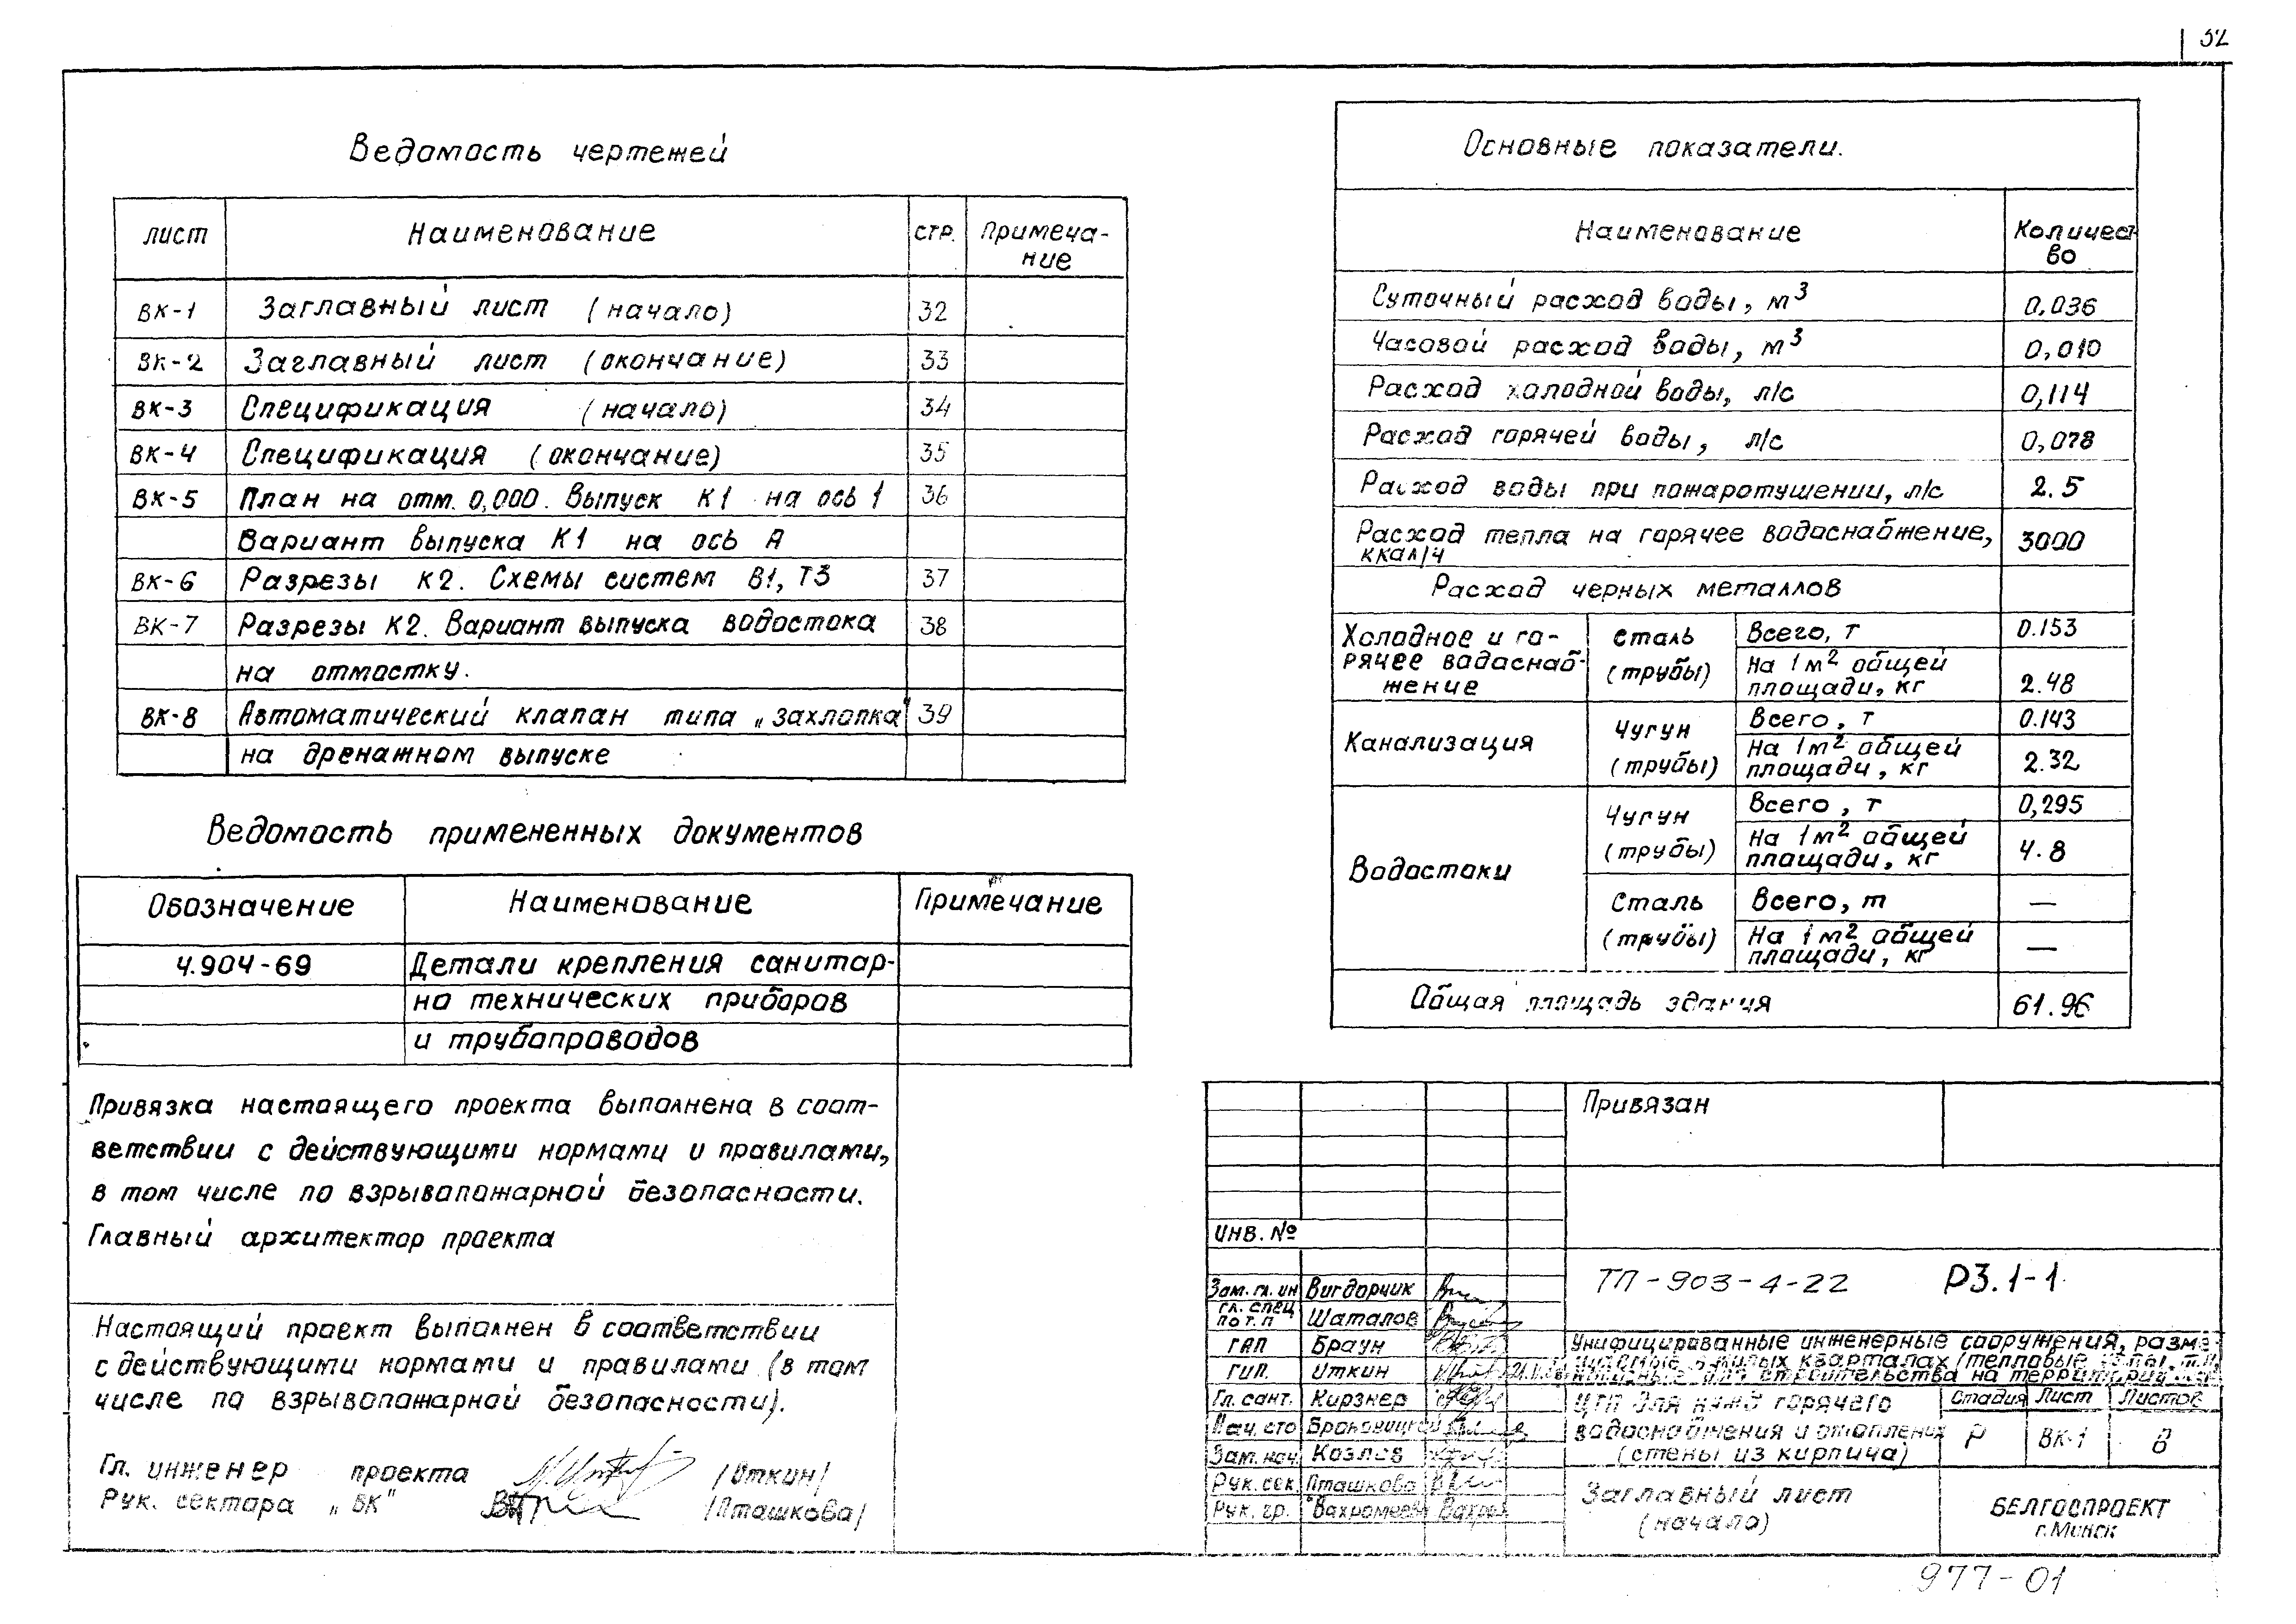 32
Ведомость чертежей
лист Наименование стр. Примеча-
ние
ВК-1 Заглавный лист (начало) 32
ВК-2 Заглавный лист (окончание) 33
ВК-3 Спецификация (начало) 34
ВК-4 Спецификация (окончание) 35
ВК-5 План на отм. 0,000. Выпуск К1 на ось 1 36
Вариант выпуска К1 на ось А
ВК-6 Разрезы К2. Схемы систем В1, Т3 37
ВК-7 Разрезы К2. Вариант выпуска водостока 38
на отмостку.
ВК-8 Автоматический клапан типа „захлопка" 39
на дренажном выпуске
Ведомость примененных документов
Обозначение Наименование Примечание
4.904-69 Детали крепления санитар-
но технических приборов
и трубопроводов
Привязка настоящего проекта выполнена в соот-
ветствии с действующими нормами и правилами,
в том числе по взрывопожарной безопасности.
Главный архитектор проекта
Настоящий проект выполнен в соответствии
с действующими нормами и правилами (в том
числе по взрывопожарной безопасности).
Гл. инженер проекта /Уткин/
Рук. сектора „ВК" /Пташкова/
Основные показатели.
Наименование Количест-
во
Суточный расход воды, м³ 0,036
Часовой расход воды, м³ 0,010
Расход холодной воды, л/с 0,114
Расход горячей воды, л/с 0,078
Расход воды при пожаротушении, л/с 2.5
Расход тепла на горячее водоснабжение, 3000
ккал/ч
Расход черных металлов
Холодное и го-
рячее водоснаб-
жение
сталь
(трубы)
Всего, т 0.153
На 1м² общей
площади, кг 2.48
Канализация
Чугун
(трубы)
Всего, т 0.143
На 1м² общей
площади, кг 2.32
Водостоки
Чугун
(трубы)
Всего, т 0,295
На 1м² общей
площади, кг 4.8
Сталь
(трубы)
Всего, т —
На 1м² общей
площади, кг —
Общая площадь здания 61.96
Привязан
Инв. №
ТП-903-4-22 Р3.1-1
Зам. гл. ин Вигдорчик
гл. спец
по т.п Шаталов
ГАП Браун
ГИП Уткин
Гл. сант. Кирзнер
Нач. сто
Зам. нач Козлов
Рук. сек Пташкова
Рук. гр. Вахромеева
Унифицированные инженерные сооружения, разме-
жилых кварталах (тепловые
строительства на территории
ЦТП для нужд горячего
водоснабжения и отопления
(стены из кирпича)
Стадия Лист Листов
Р ВК-1 8
Заглавный лист
(начало)
БЕЛГОСПРОЕКТ
г. Минск
977-01